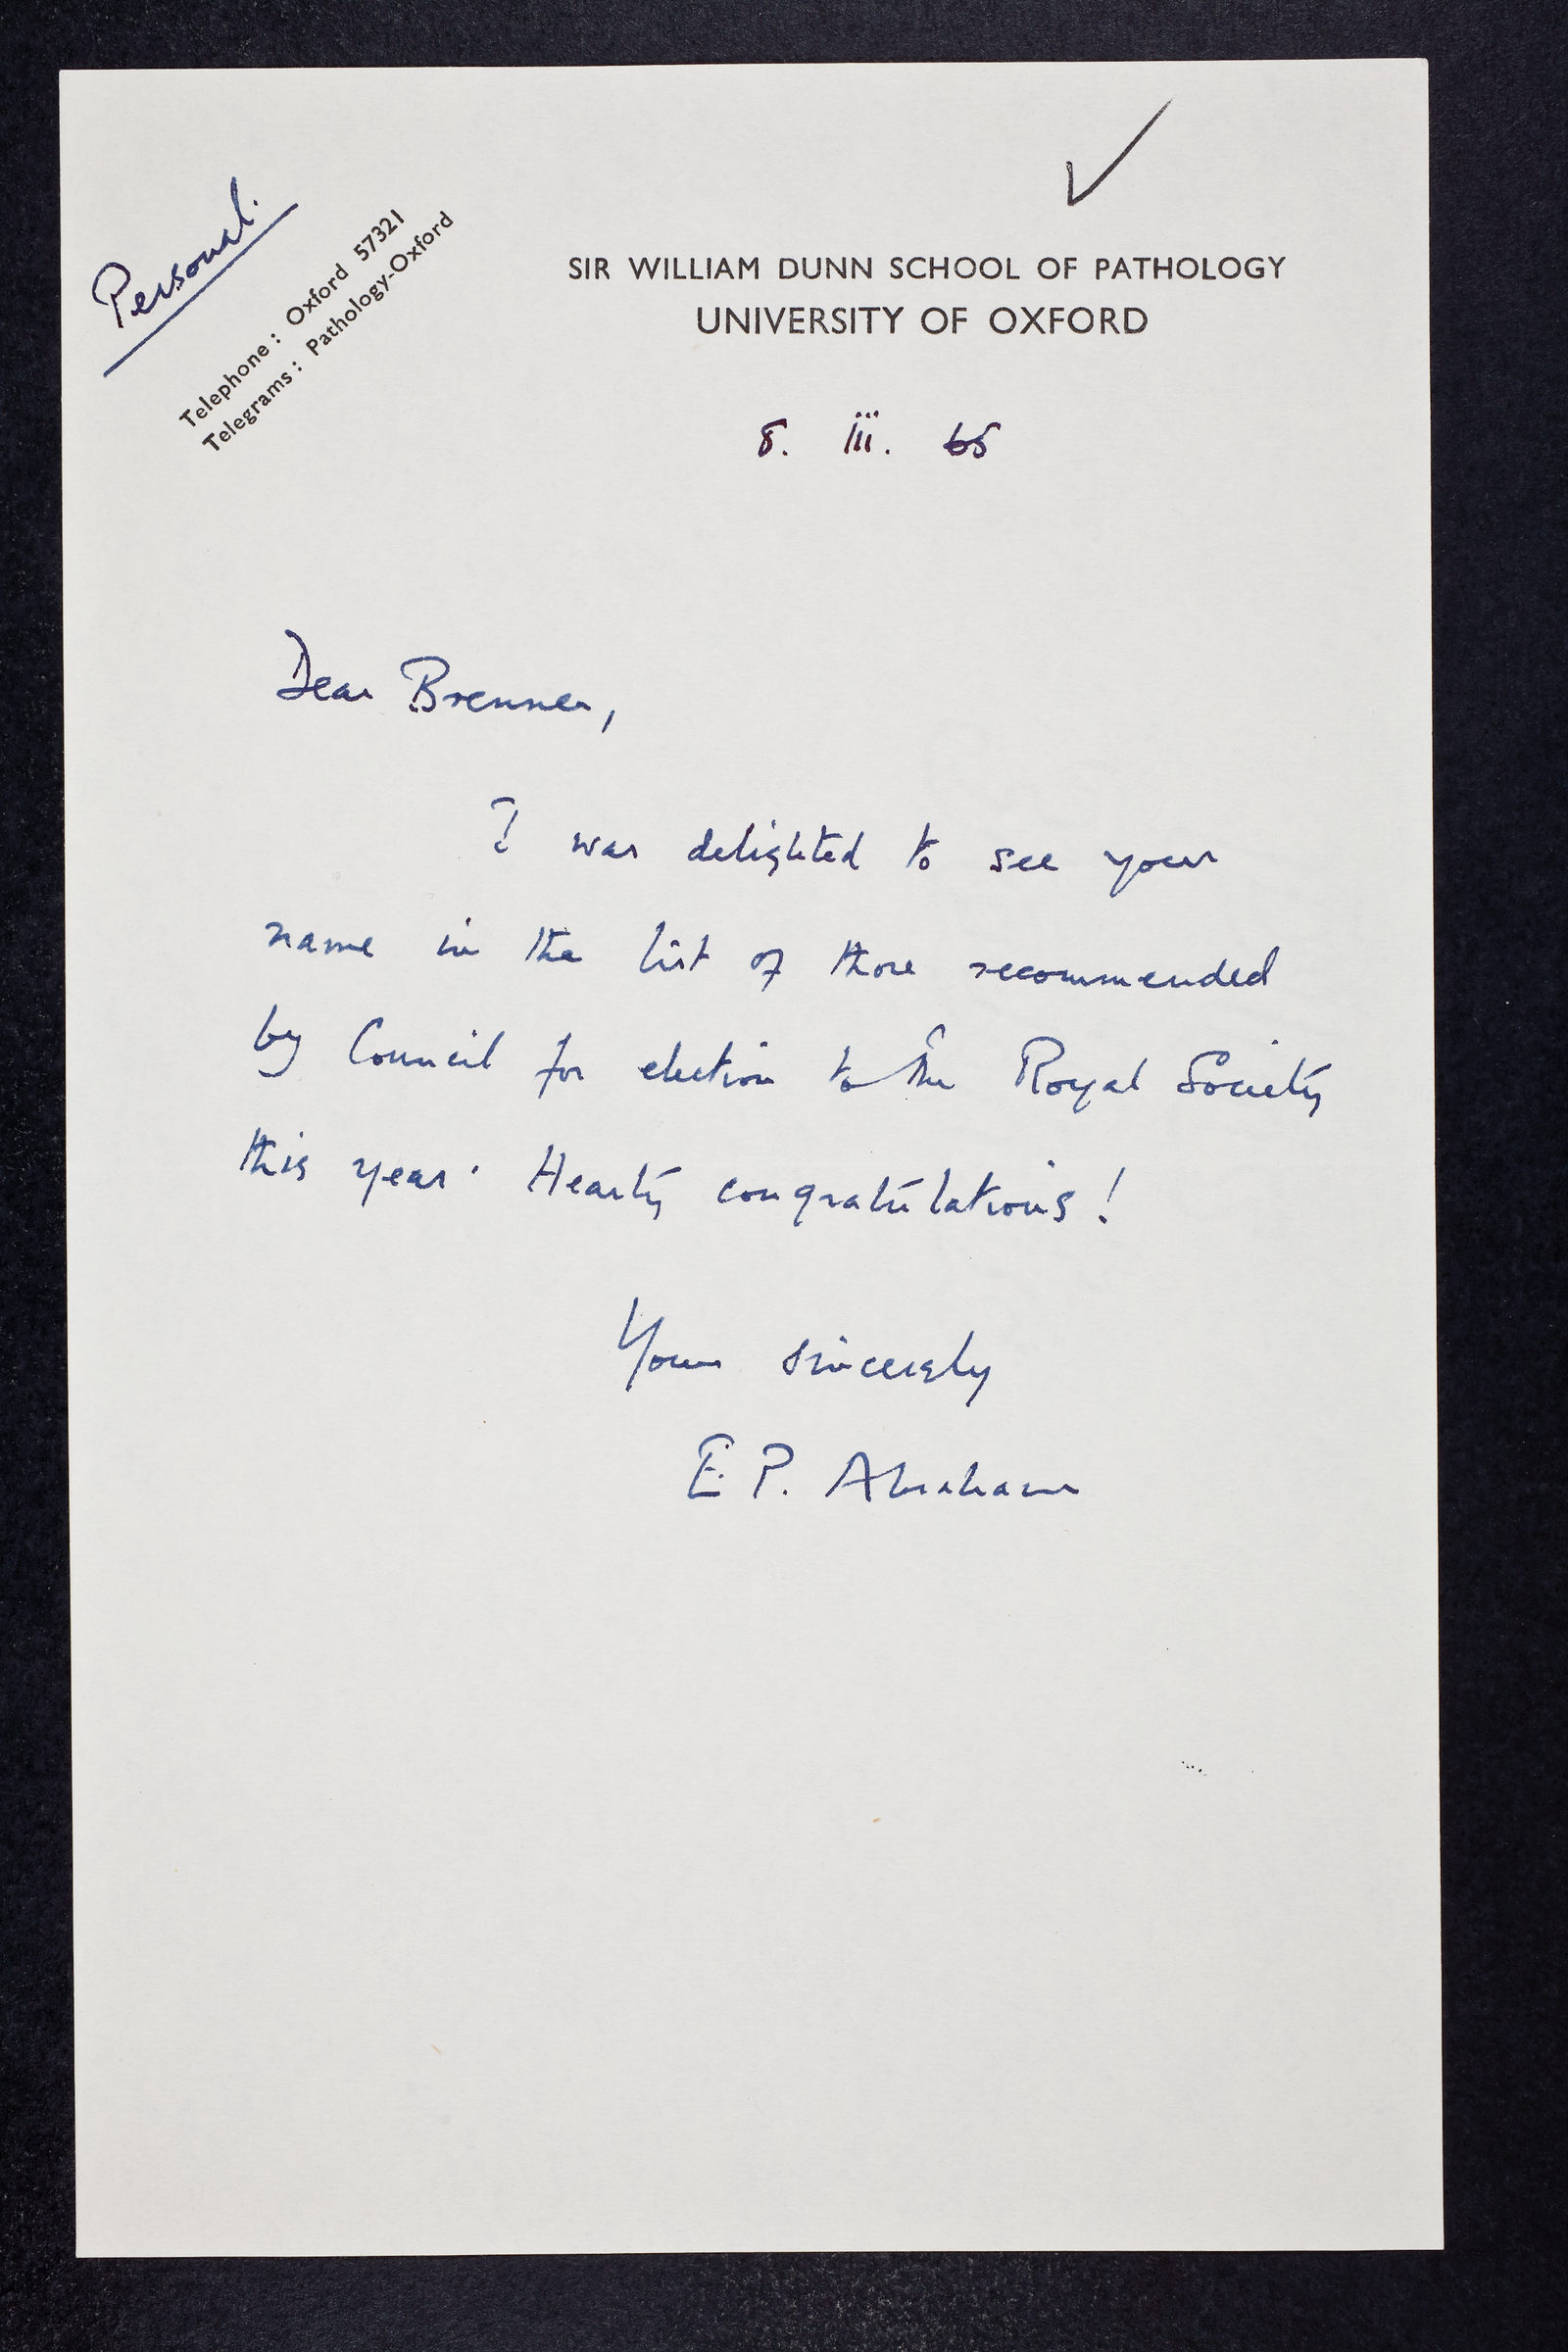 Personal.
Telephone: Oxford 57321
Telegrams: Pathology-Oxford
SIR WILLIAM DUNN SCHOOL OF PATHOLOGY
UNIVERSITY OF OXFORD
8. iii. 65
Dear Brenner,
I was delighted to see your
name in the list of those recommended
by Council for election to the Royal Society
this year. Hearty congratulations!
Yours sincerely
E. P. Abraham